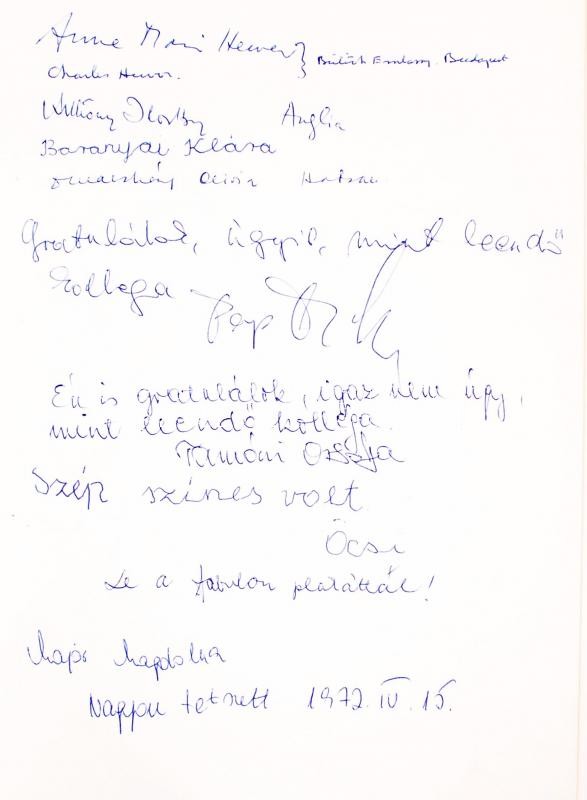 Anne Mari Hewer } British Embassy. Budapest
Charles Hewer.
Anglia
Baranyai Klára
Gratulálok, úgyis, mint leendő
kollega Pap
Én is gratulálok, igaz nem úgy,
mint leendő kolléga.
Tamási Orsolya
Szép színes volt
Öcsi
Le a fabulon plakáttal!
Majós Magdolna
Nagyon tetszett 1972. IV. 15.